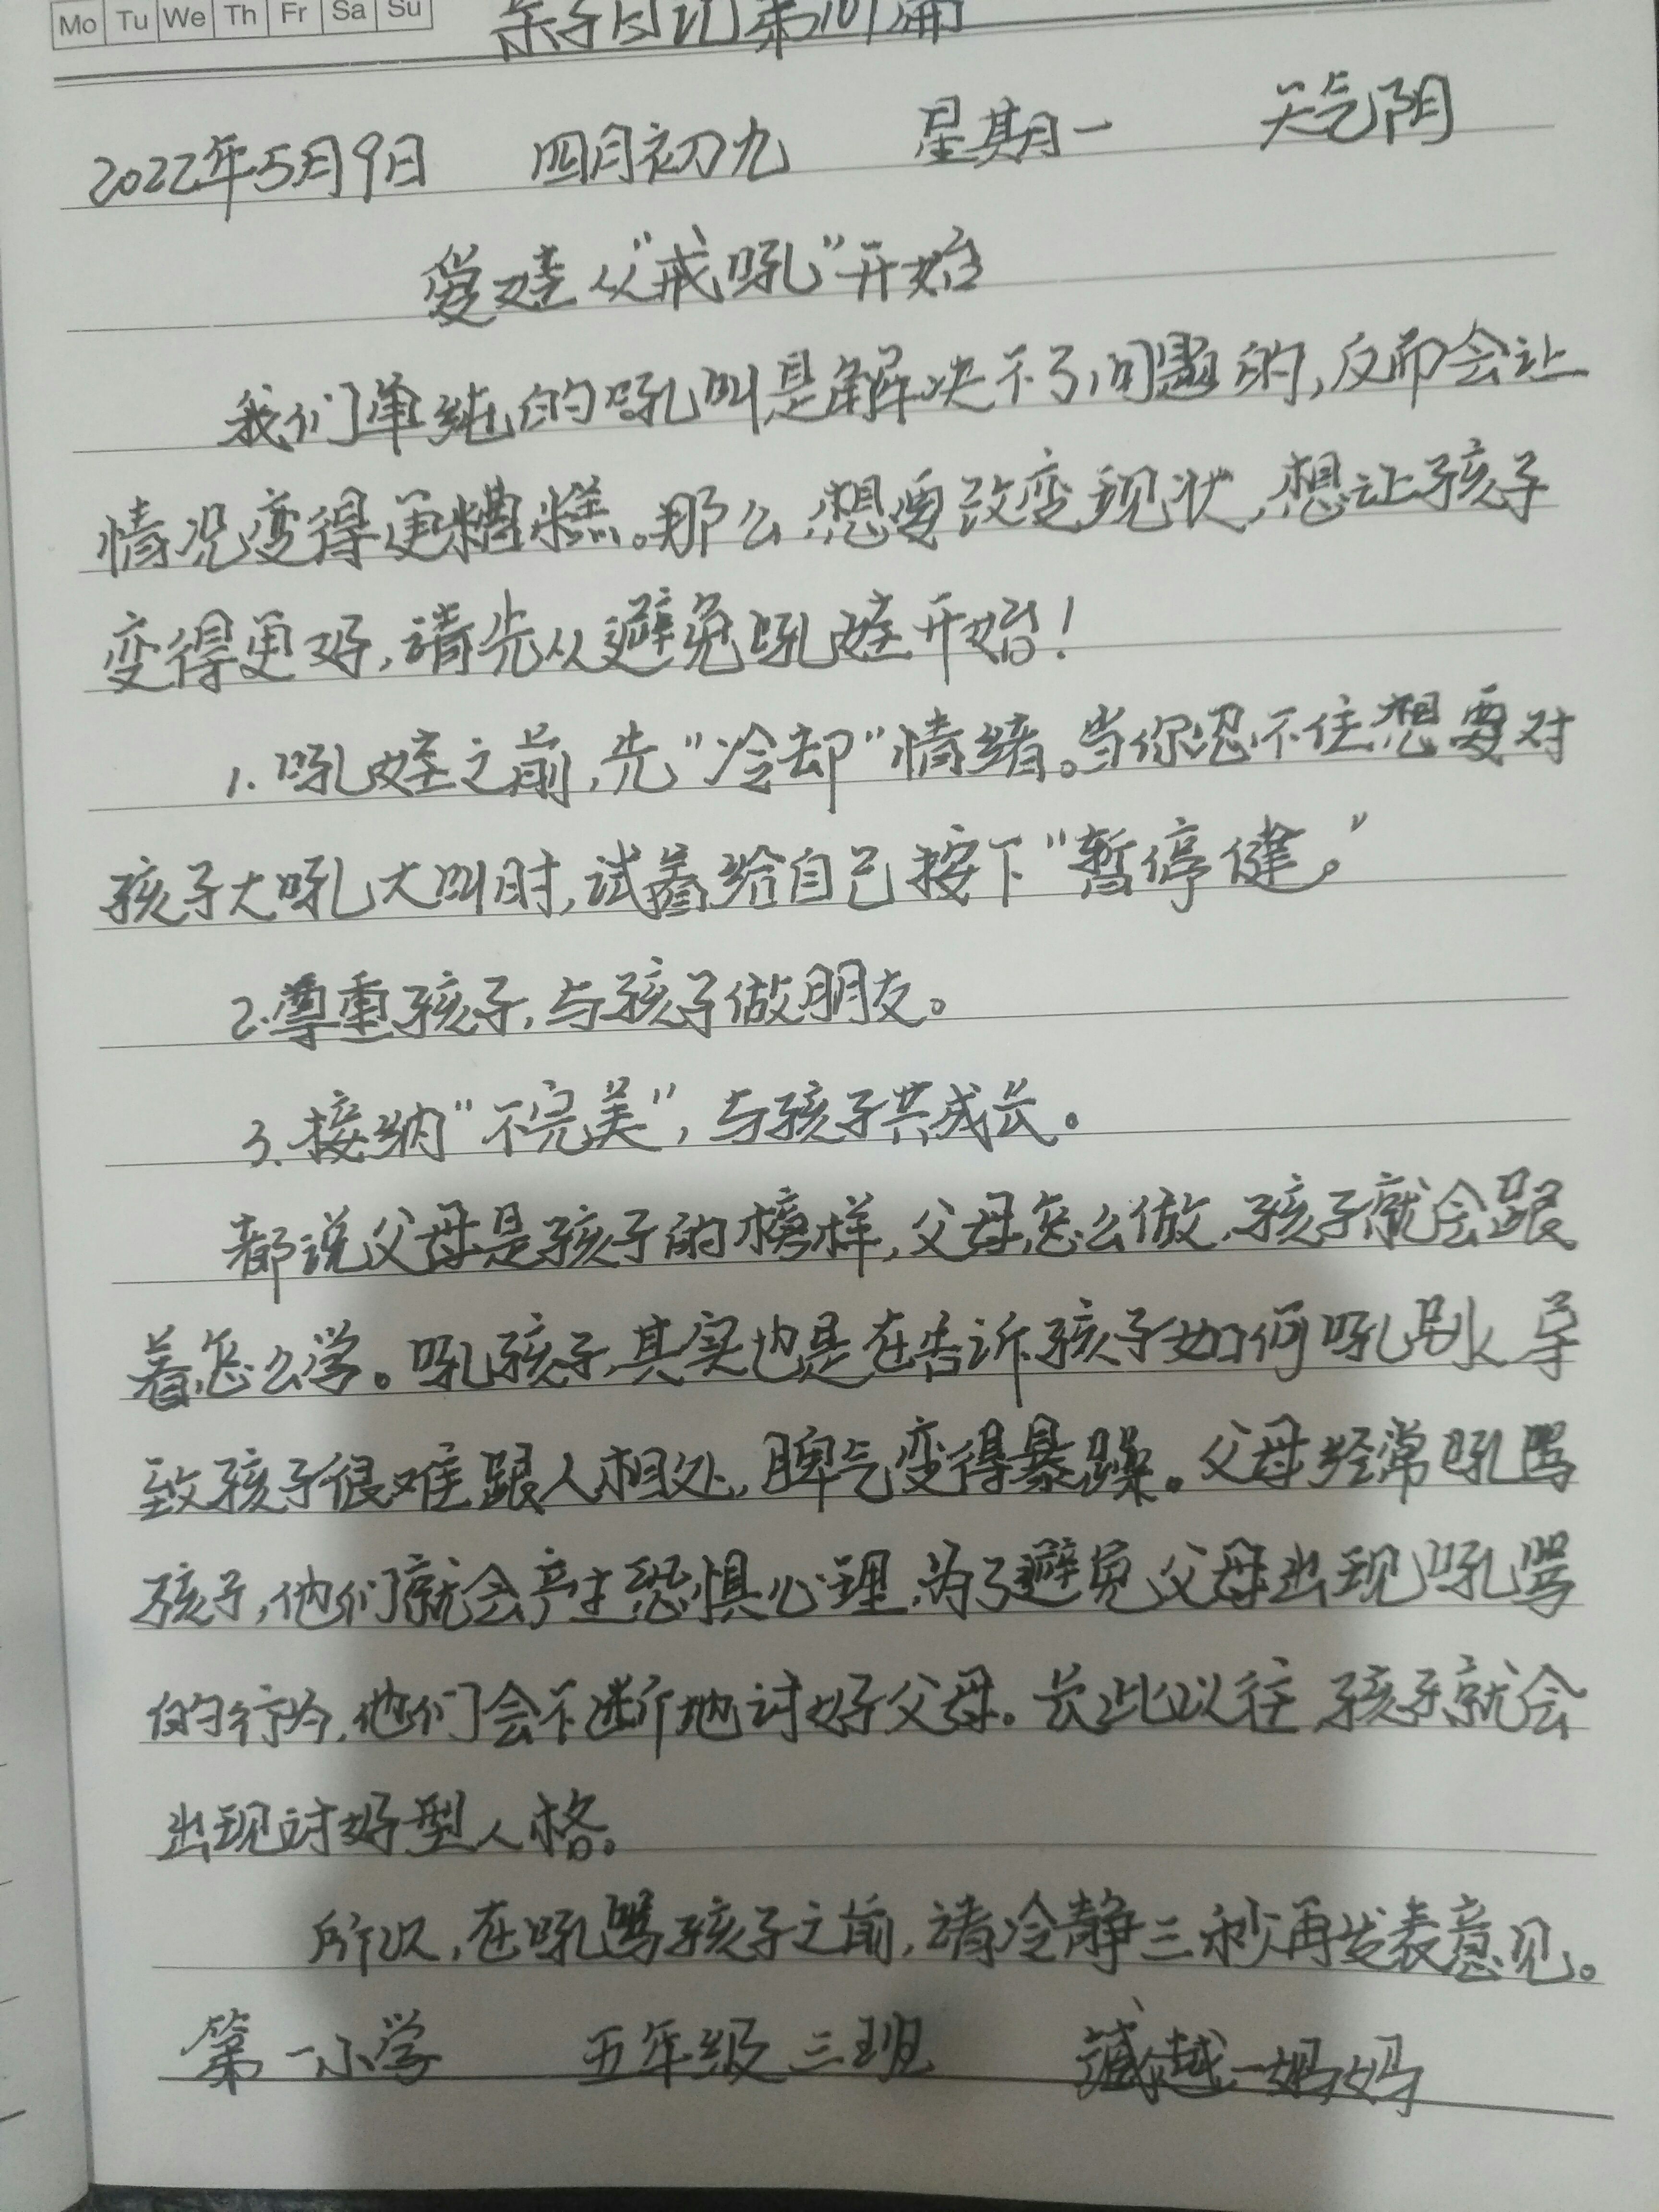 Mo Tu We Th Fr Sa Su
亲子日记第101篇
2022年5月9日 四月初九 星期一 天气阴
爱娃从“戒吼”开始
我们单纯的吼叫是解决不了问题的,反而会让
情况变得更糟糕。那么,想要改变现状,想让孩子
变得更好,请先从避免吼娃开始!
1.吼娃之前,先“冷却”情绪。当你忍不住想要对
孩子大吼大叫时,试着给自己按下“暂停健。”
2.尊重孩子,与孩子做朋友。
3.接纳“不完美”,与孩子共成长。
都说父母是孩子的榜样,父母怎么做,孩子就会跟
着怎么学。吼孩子,其实也是在告诉孩子如何吼别人,导
致孩子很难跟人相处,脾气变得暴躁。父母经常吼骂
孩子,他们就会产生恐惧心理,为了避免父母出现吼骂
的行为,他们会不断地讨好父母。长此以往,孩子就会
出现讨好型人格。
所以,在吼骂孩子之前,请冷静三秒再发表意见。
第一小学 五年级三班 越一妈妈